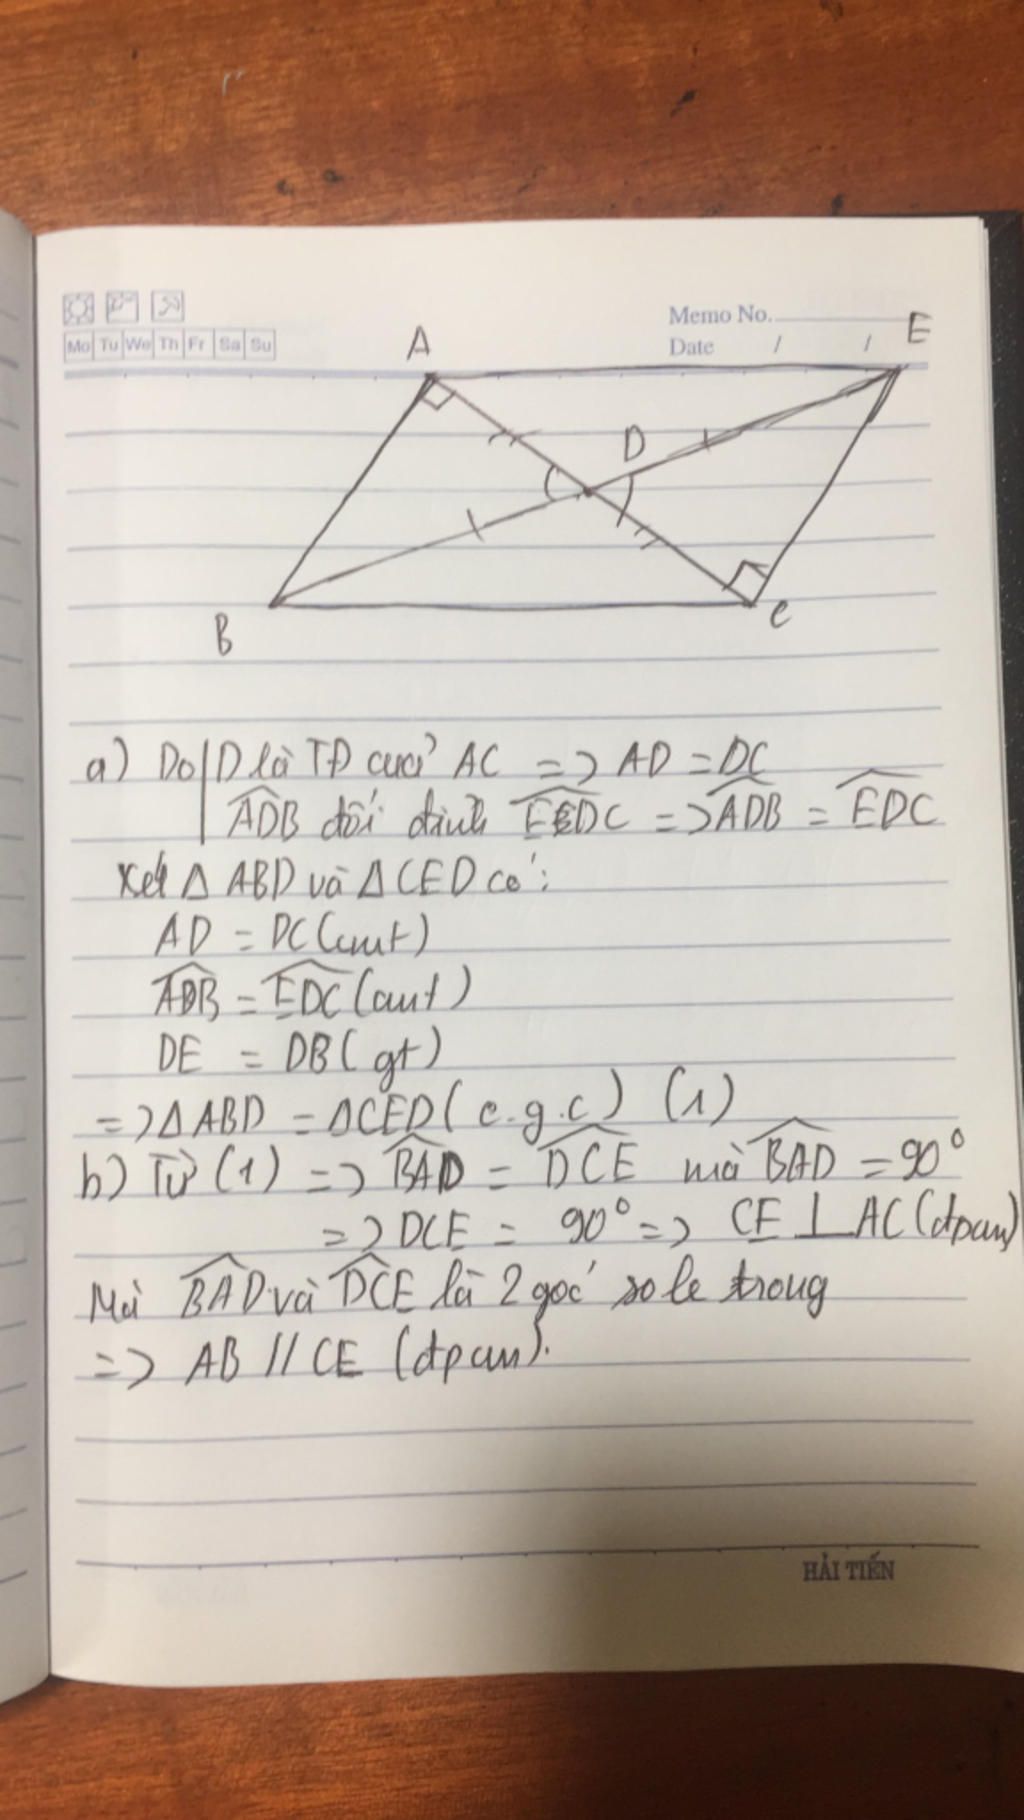 Memo No.
Mo Tu We Th Fr Sa Su
Date / /
A
E
D
B
C
a) Do D là TĐ của AC => AD = DC
ADB đối đỉnh EDC => ADB = EDC
Xét Δ ABD và Δ CED có:
AD = DC (cmt)
ADB = EDC (cmt)
DE = DB (gt)
=> Δ ABD = Δ CED (c.g.c) (1)
b) Từ (1) => BAD = DCE mà BAD = 90°
=> DCE = 90° => CE ⊥ AC (đpcm)
Mà BAD và DCE là 2 góc so le trong
=> AB // CE (đpcm).
HẢI TIẾN